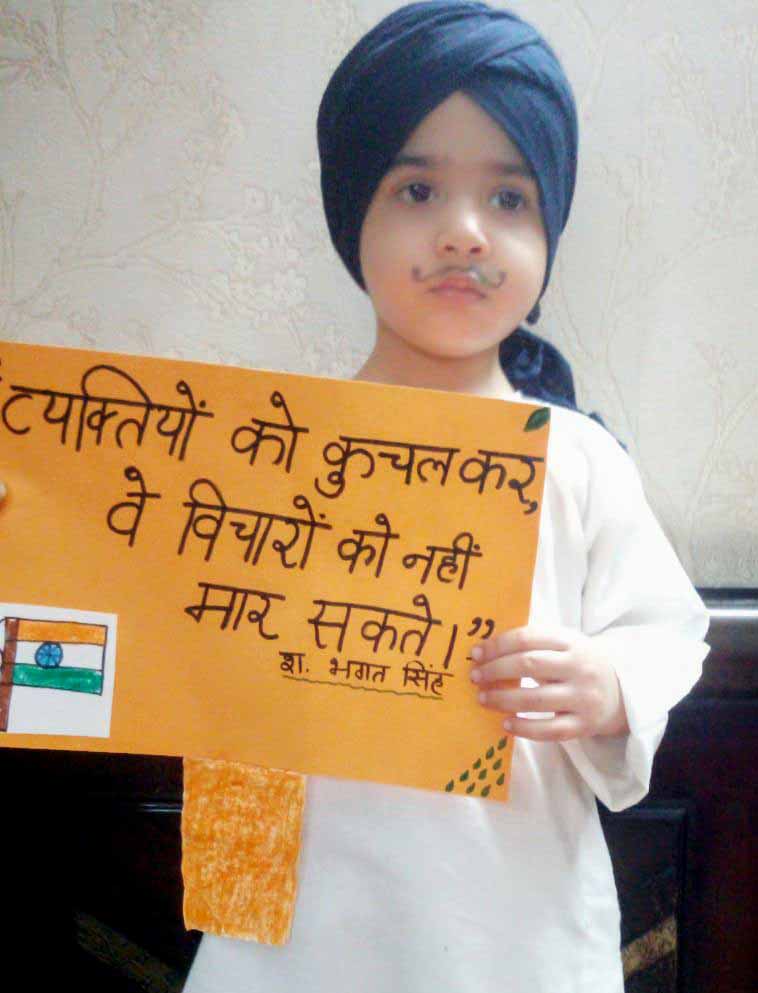 “व्यक्तियों को कुचलकर,
वे विचारों को नहीं
मार सकते।”
श. भगत सिंह